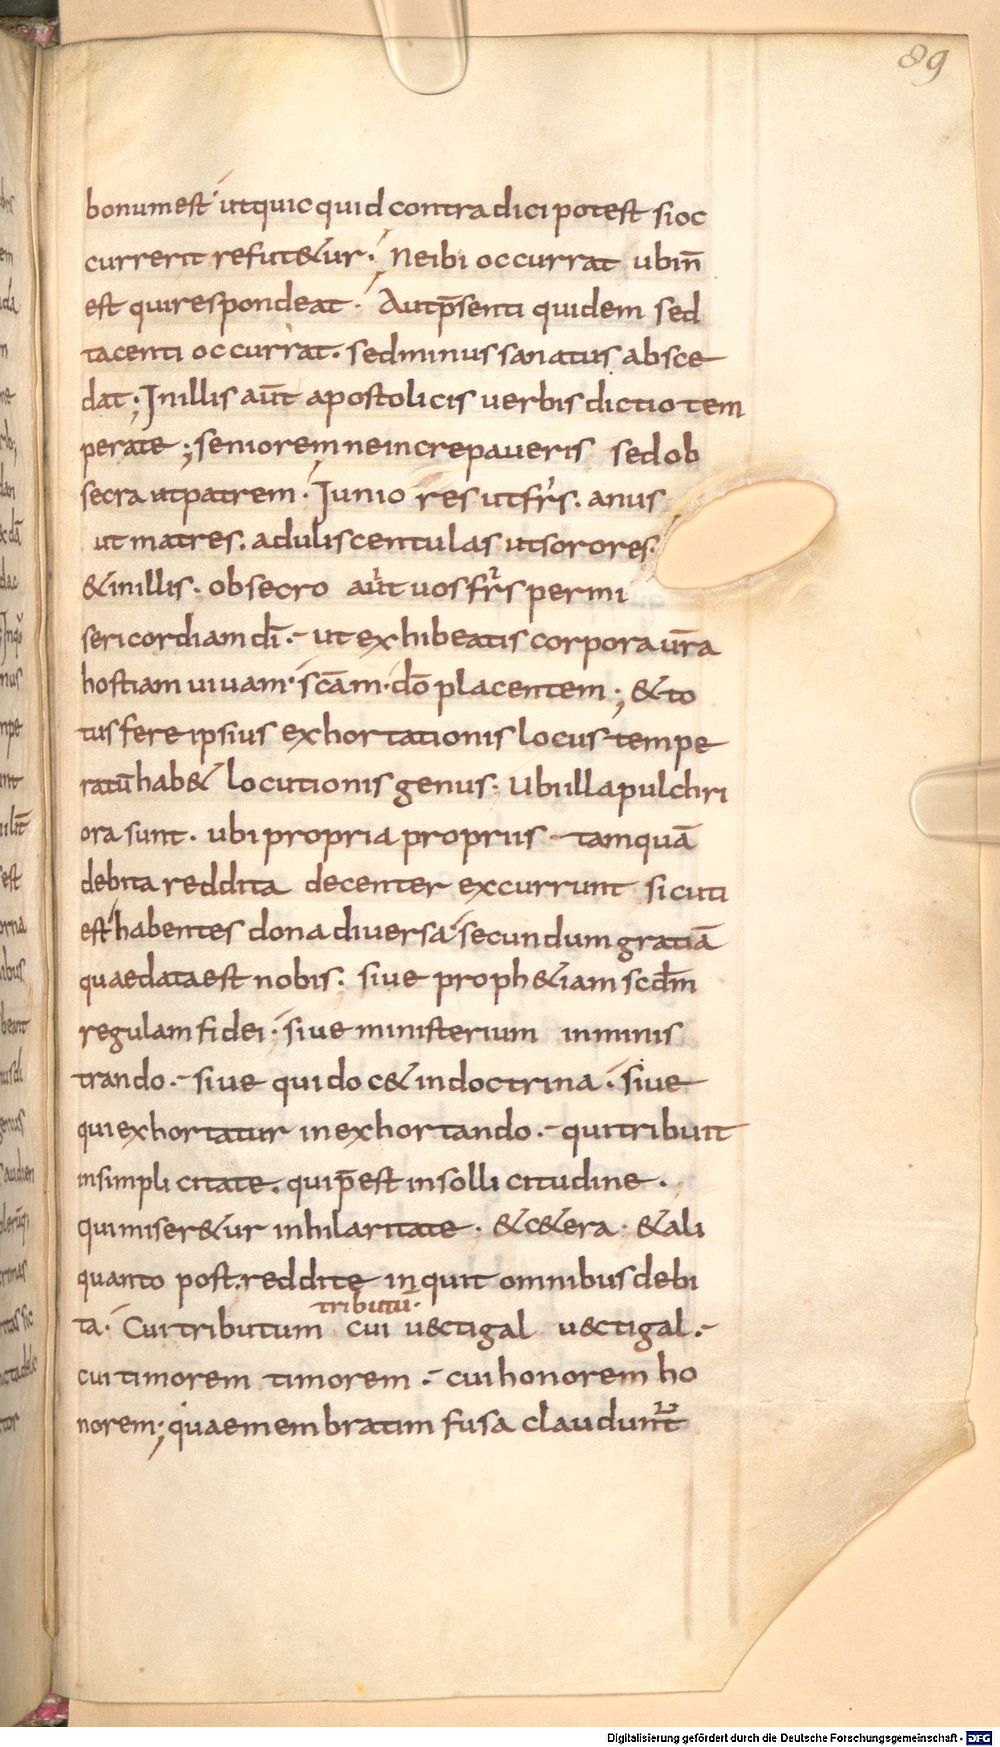 89
bonum est utquic quid contra dici potest si oc
currerit refut&ur. Ne ibi occurrat ubi n̄
est qui respondeat. Aut p̄senti quidem sed
tacenti occurrat. sed minus sanatus absce
dat; In illis aūt apostolicis uerbis dictio tem
perate; seniorem ne increpaueris sed ob
secra ut patrem. Iunio res ut fr̄s. anus
ut matres. aduliscentulas ut sorores.
& in illis. obsecro aūt uos fr̄s per mi
sericordiam dī. ut exhibeatis corpora ur̄a
hostiam uiuam. sc̄am. dō placentem; & to
tus fere ipsius exhortationis locus tempe
ratū hab& locutionis genus. Ubi illa pulchri
ora sunt. ubi propria propriis tamquā
debita reddita decenter excurrunt sicuti
est habentes dona diuersa secundum gratiā
quae data est nobis. siue proph&iam scdm̄
regulam fidei. siue ministerium in minis
trando. siue qui doc& in doctrina. siue
qui exhortatur in exhortando. qui tribuit
in simpli citate. qui p̄est in solli citudine.
qui miser&ur in hilaritate. &c&era. & ali
quanto post. reddite inquit omnibus debi
tributū.
ta. Cui tributum cui u&ctigal u&ctigal.
cui timorem timorem. cui honorem ho
norem; quae membratim fusa claudunt̄
Digitalisierung gefördert durch die Deutsche Forschungsgemeinschaft - DFG